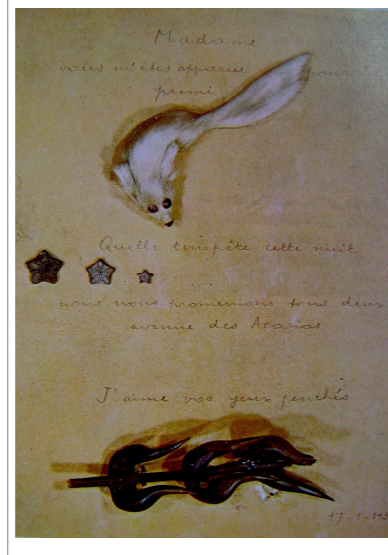 Madame
vous m'êtes apparue pour
premi
Quelle tempête cette nuit
nous nous promenions tous deux
avenue des Acacias
J'aime vos yeux penchés